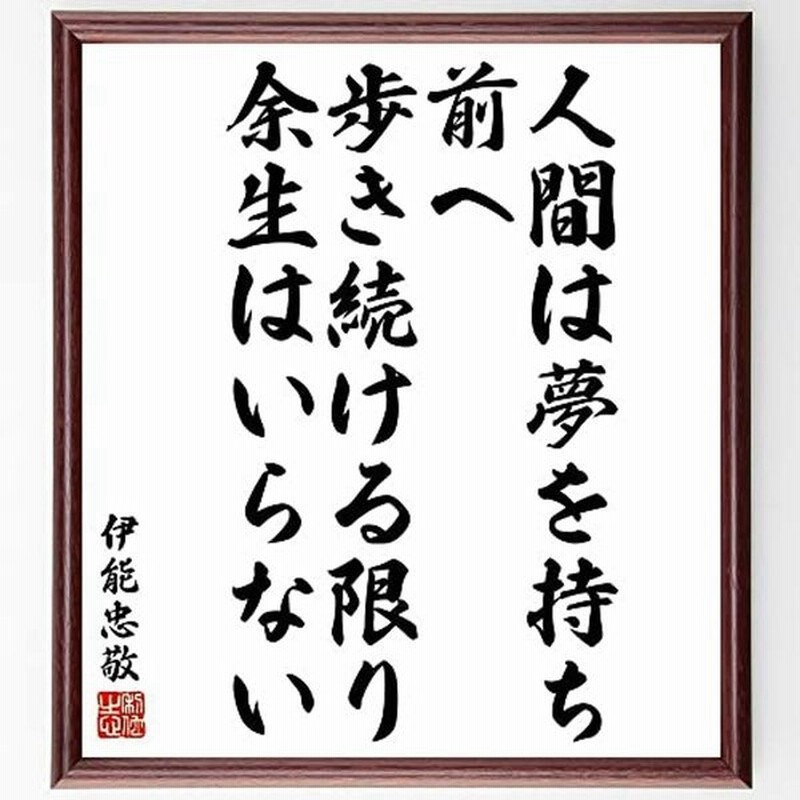 人間は夢を持ち
前へ
歩き続ける限り
余生はいらない
伊能忠敬